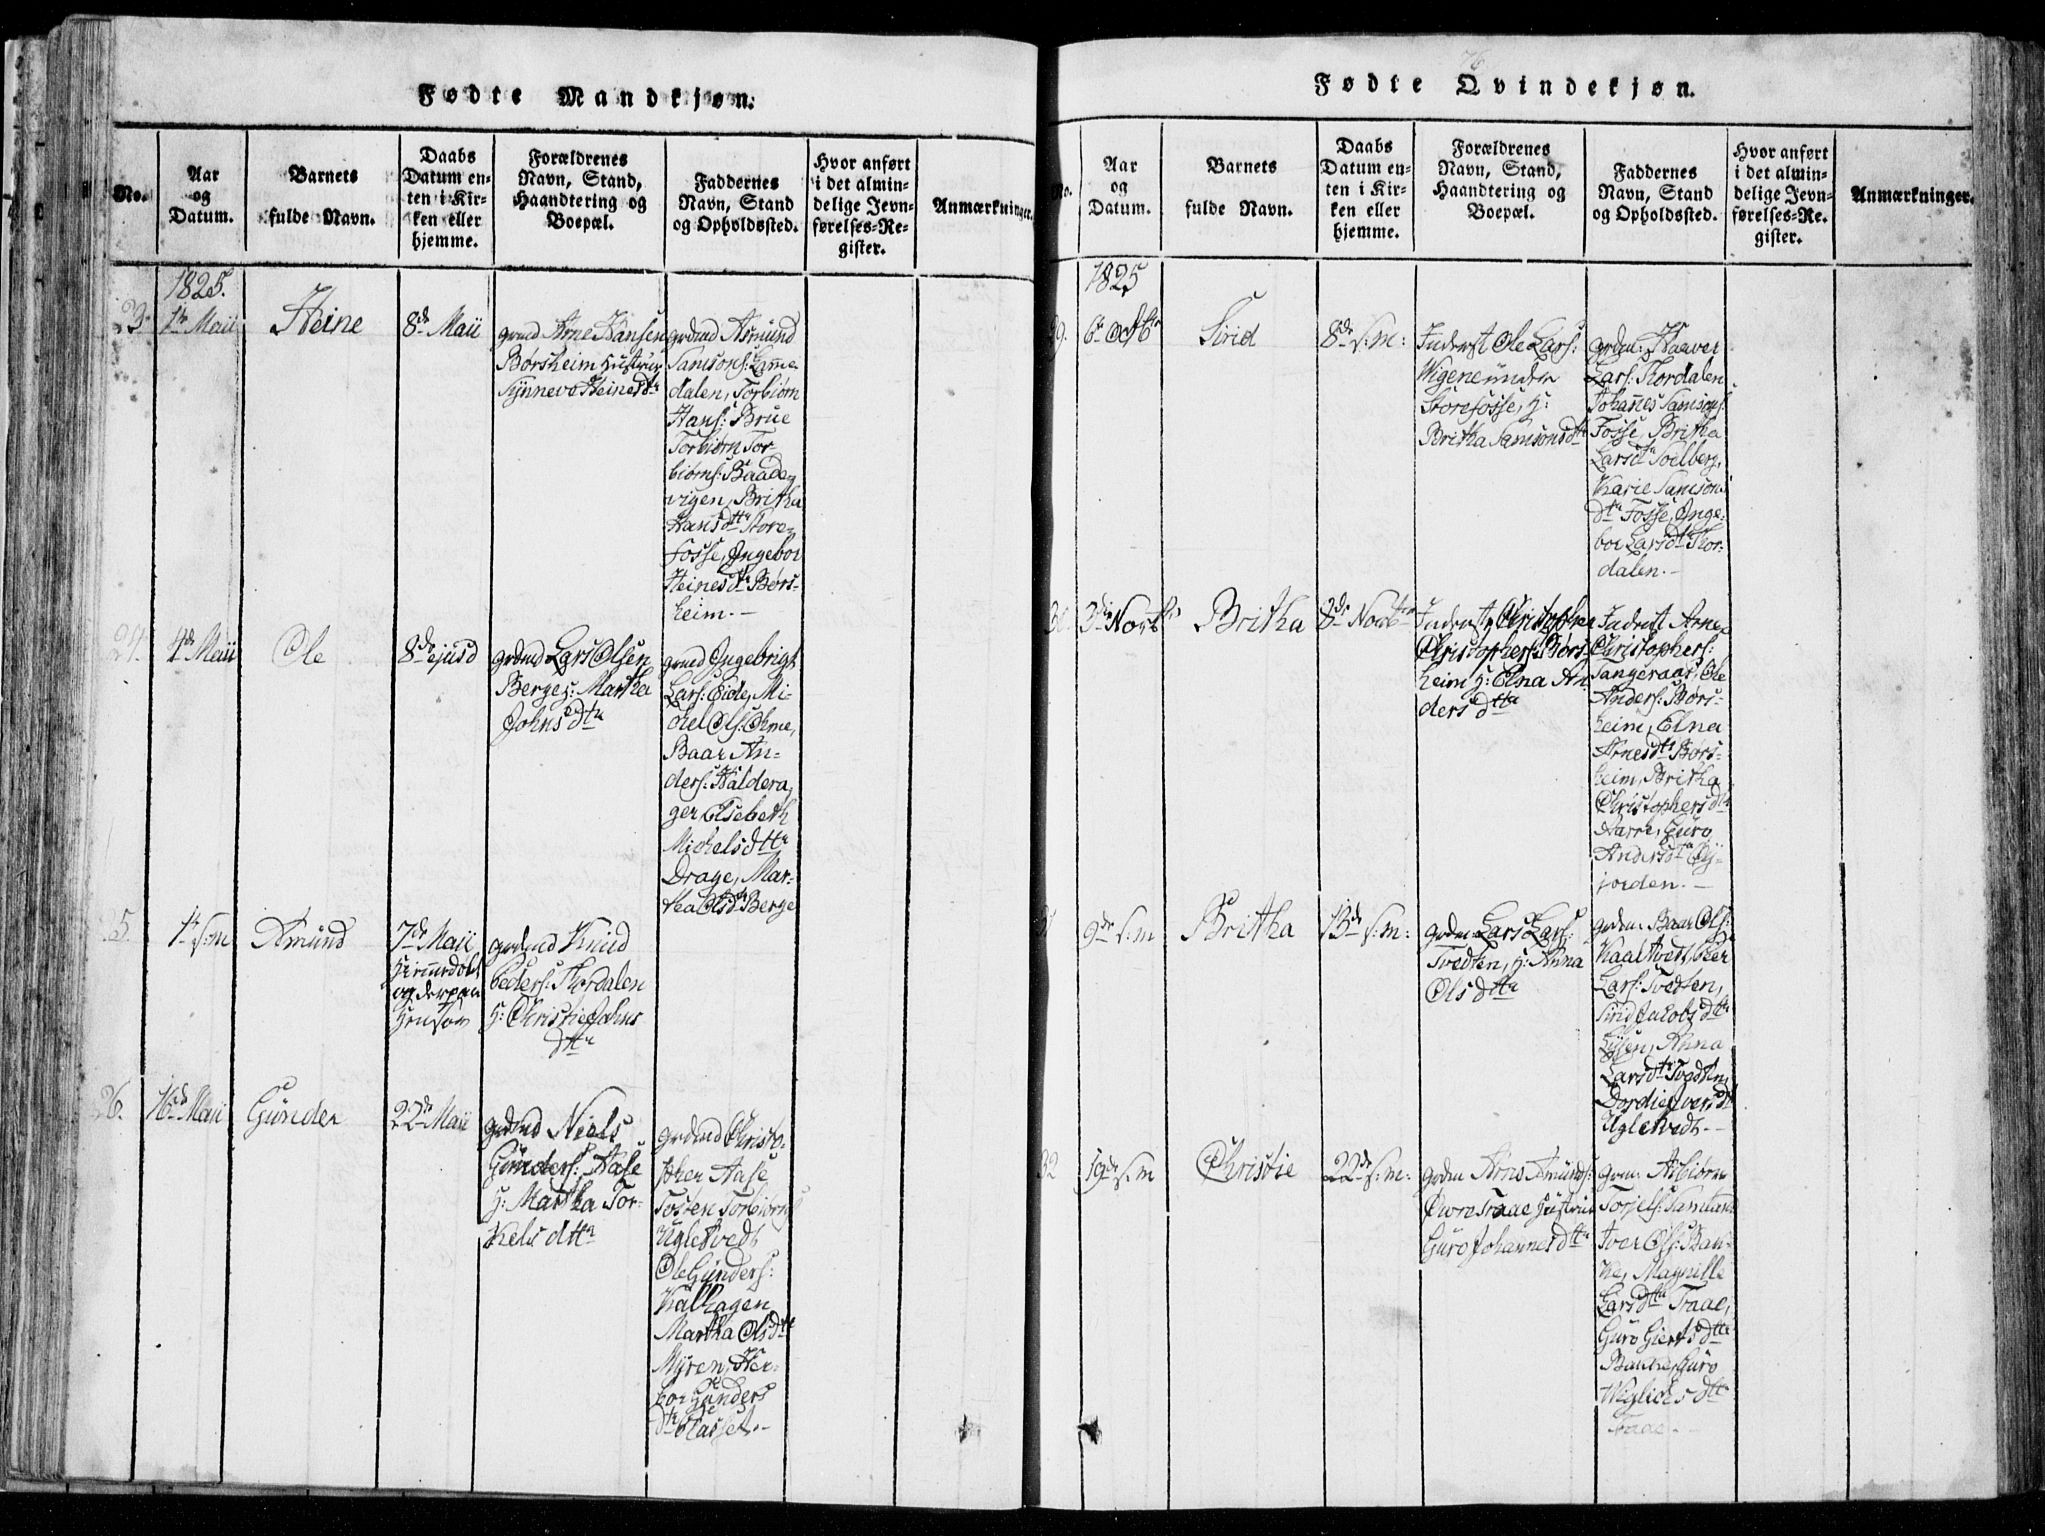 76
Fødte Mandkjøn.
No.
Aar
og
Datum.
Barnets
fulde Navn.
Daabs
Datum en-
ten i Kir-
ken eller
hjemme.
Forældrenes
Navn, Stand,
Haandtering og
Boepæl.
Faddernes
Navn, Stand
og Opholdssted.
Hvor anført
i det almin-
delige Jevn-
førelses-Re-
gister.
Anmærkninger.
1825.
23.
1te Maii
Heine
8de Maii
grmd Arne Hansen
Børsheim Hustrue
Synneve Heinesdtr
grdmd Asmund
Samsons: Lamme
dalen, Torbiørn
Hans: Brue
Torbiørn Tor
biørns: Baade,
vigen, Britha
Hansdttr Store,
fosse, Ingebor
Heinesdtr Børs-
heim.-
24.
4de Maii
Ole
8de ejusd
grdmd Lars Olsen
Berge H: Martha
Johnsdtr
grmd Ingebrigt
Lars: Eide, Mi-
chel Ols: Ohme,
Baar An-
ders: Haldera,
ger Elsebeth
Michelsdttr
Drage, Mar-
tha Olsdtr Berge
5.
1te s:m
Amund
7de Maii
Hiemedøbt
og derpaa
grdmd Knud
Peders: Skordalen
H: Christie Johns
dttr
26.
16de Maii
Gunder
22de Maii
grdmd Niels
Gunders: Aase
H: Martha Tor-
kelsdttr
grdmd Christo-
pher Aase
Tosten Torbiørns
Ugletvedt
Ole Gunders:
Kalhagen
Martha Olsdttr
Myren, Her-
bor Gunders
dtr
Fødte Qvindekjøn.
No.
Aar
og
Datum.
Barnets
fulde Navn.
Daabs
Datum en-
ten i Kir-
ken eller
hjemme.
Forældrenes
Navn, Stand,
Haandtering og
Boepæl.
Faddernes
Navn, Stand
og Opholdssted.
Hvor anført
i det almin-
delige Jevn-
førelses-Re-
gister.
Anmærkninger.
1825
29.
6te Octbr
Sirid
8de s:m:
Inderst Ole Lars:
Wigene under
Storefosse, H:
Britha Samsonsdtr
grdm: Haaver
Lars: Skordalen
Johannes Samsons:
Fosse, Britha
Larsdtr Soelberg,
Karie Samsons
dtr Fosse, Inge-
bor Larsdtr Skor-
dalen.-
30.
3die Novbr
Britha
8de Novbr
Inderst Christopher
Christophers: Børs-
heim H: Elna An
dersdttr
Inderst Arne
Christophers:
Tangeraas, Ole
Anders: Børs-
heim, Elna
Arnesdtr Børs-
heim, Britha
Christophersdtr
Aarre, Guro
Andersdtr Øy-
jorden.-
31
9de s:m
Britha
13de s:m:
grdm Lars Lars:
Tvedten, H: Anna
Olsdttr
grdm. Baar Ols:
Kaaltvedt, Peer
Lars: Tvedten,
Sirid Jacobsdttr
Lyssen, Anna
Larsdtr Tvedten,
Dordie Iversdtr
Ugletvedt.-
32
19de s:m
Christie
22de s:m:
grdm Arne Amunds:
Øvre Traae Hustrue
Guro Johannesdttr
grm: Asbiørn
Torjels:
Iver Ols: Ban-
ke, Magnille
Larsdtr Traae,
Guro Giertsdttr
Banke, Guro
Wiglichsdttr
Traae.-